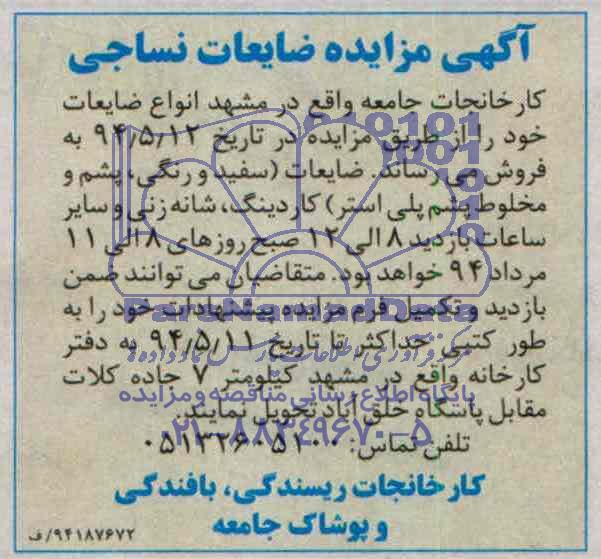 آگهی مزایده ضایعات نساجی
کارخانجات جامعه واقع در مشهد انواع ضایعات
خود را از طریق مزایده در تاریخ ۹۴/۵/۱۲ به
فروش می رساند. ضایعات (سفید و رنگی، پشم و
مخلوط پشم پلی استر) کاردینگ، شانه زنی و سایر
ساعات بازدید ۸ الی ۱۲ صبح روزهای ۸ الی ۱۱
مرداد ۹۴ خواهد بود. متقاضیان می توانند ضمن
بازدید و تکمیل فرم مزایده پیشنهادات خود را به
طور کتبی حداکثر تا تاریخ ۹۴/۵/۱۱ به دفتر
کارخانه واقع در مشهد کیلومتر ۷ جاده کلات
پایگاه اطلاع رسانی مناقصه و مزایده
مقابل پاسگاه خلق آباد تحویل نمایند.
۰۲۱-۸۸۳۴۹۶۷۰-۵
تلفن تماس: ۰۵۱۳۲۶۰۵۱۰۰
کارخانجات ریسندگی، بافندگی
و پوشاک جامعه
۹۴۱۸۷۶۷۲/ف